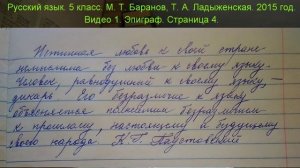 Русский язык. 5 класс. М. Т. Баранов, Т. А. Ладыженская. 2015 год.
Видео 1. Эпиграф. Страница 4.
Истинная любовь к своей стране
немыслима без любви к своему языку.
Человек, равнодушный к своему языку, –
дикарь. Его безразличие к языку
объясняется полнейшим безразличием
к прошлому, настоящему и будущему
своего народа. К. Г. Паустовский